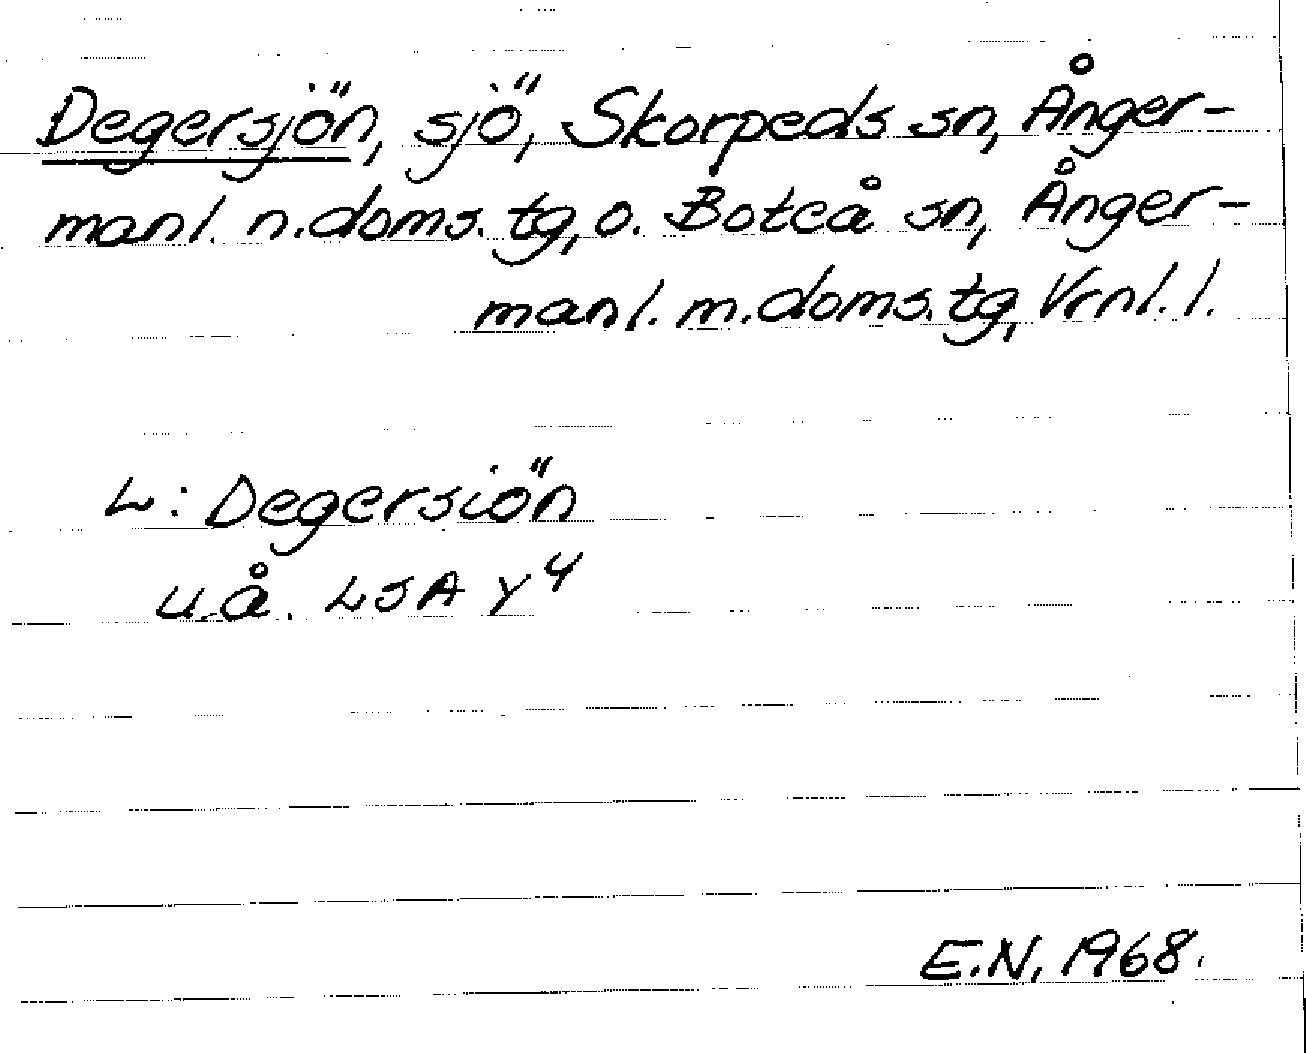 Degersjön, sjö, Skorpeds sn, Ånger-
manl. n.doms.tg, o. Boteå sn, Ånger-
manl. m.doms.tg, Vrnl. l.
L: Degersiön
u.å. LSA Y 4
E.N. 1968.